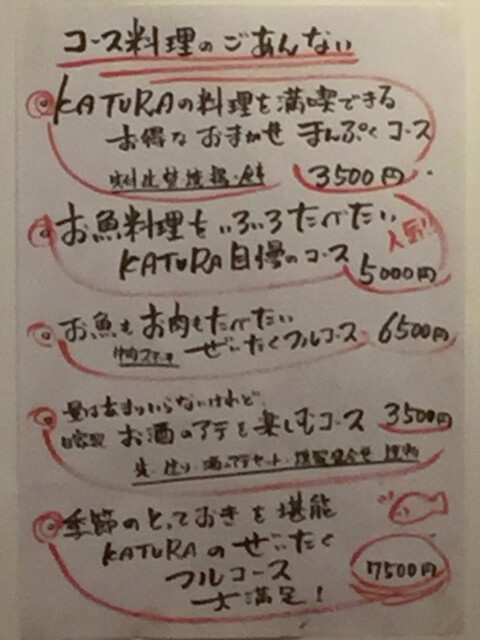 コース料理のごあんない
KATURAの料理を満喫できる
お得な おまかせ まんぷく コース
3500円
お魚料理をいろいろたべたい
人気!!
KATURA自慢のコース
5000円
お魚もお肉もたべたい
ぜいたくフルコース 6500円
量はあまりいらないけれど
自家製 お酒のアテを楽しむコース 3500円
季節のとっておきを堪能
KATURAのぜいたく
フルコース
7500円
大満足!